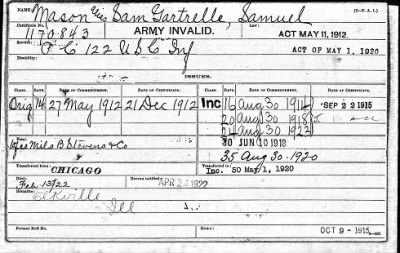 NAME: Mason alias Sam Gartrelle, Samuel (3-F.A.I.)
1170843 ARMY INVALID. ACT MAY 11, 1912.
Service: F Co 122 U S C Inf ACT OF MAY 1, 1920
Disability:
ISSUES.
CLASS. RATE. DATE OF COMMENCEMENT. DATE OF CERTIFICATE. CLASS. RATE. DATE OF COMMENCEMENT. DATE OF CERTIFICATE.
Orig 14 27 May 1912 21 Dec 1912 Inc 16 Aug 30 1914 SEP 22 1915
20 Aug 30 1918
Aug 30 1923
Mils B Stevens & Co 30 JUN 10 1918
35 Aug 30-1920
Transferred from: CHICAGO Transferred to: Inc. 50 May 1, 1920
Died: Feb 13/22 Bureau notified: APR 22 1922
Remarks: Elkville
Ill
Former Roll No. OCT 9 - 1915